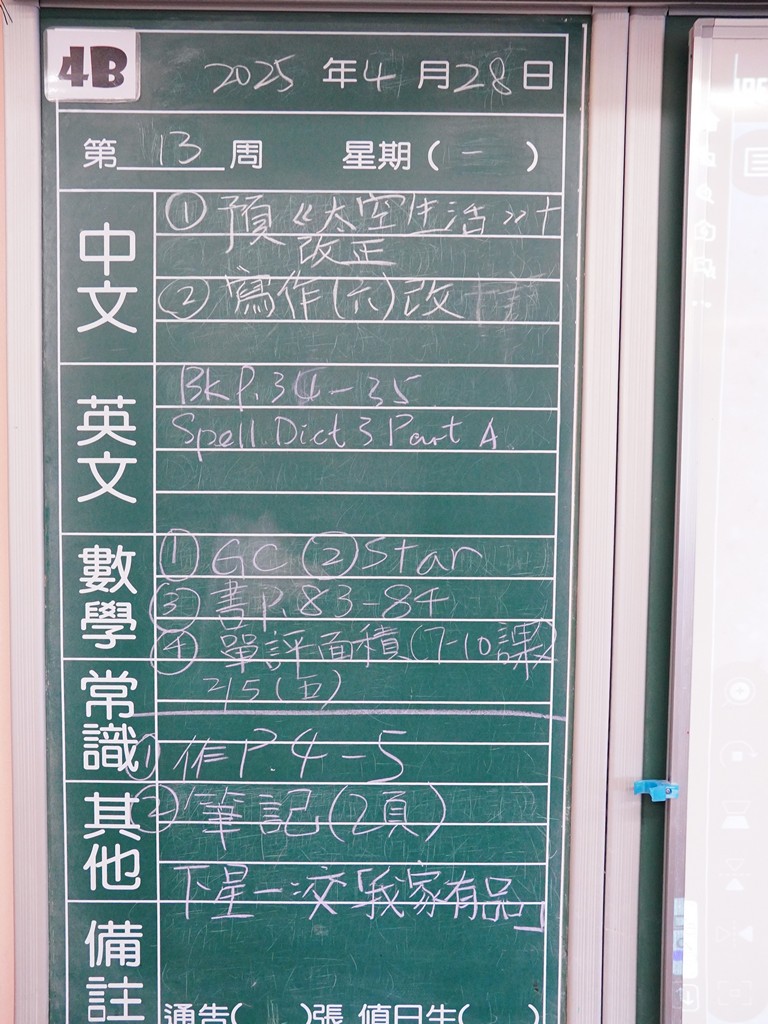 4B
2025年4月28日
第13周 星期(一)
中文
①預《太空生活》+
改正
②寫作(六)改
英文
BK P.34-35
Spell. Dict 3 Part A
數學
①GC ②Star
③書P.83-84
④單評面積(7-10課)
2/5(五)
常識
①作P.4-5
其他
②筆記(2頁)
下星一交「我家有品」
備註
通告( )張 值日生( )